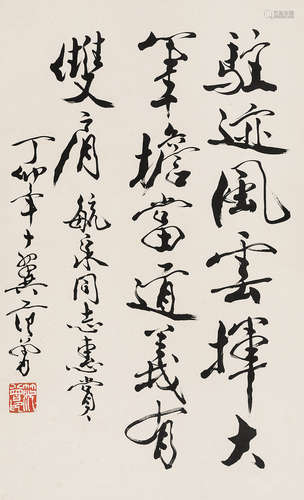 駐迹風雲揮大
筆擔當道義有
雙肩 毓泉同志惠賞
丁卯年十翼范曾